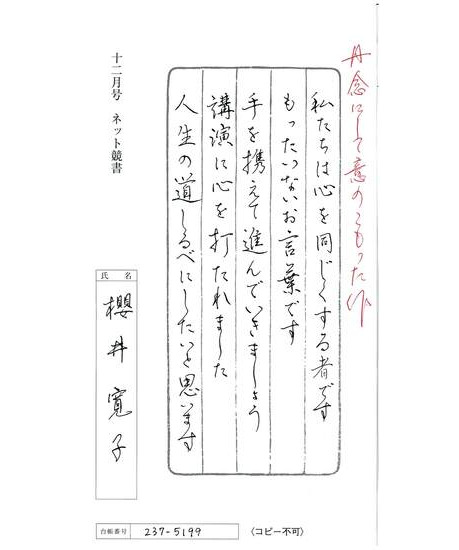 丹念にして意のこもった作
私たちは心を同じくする者です
もったいないお言葉です
手を携えて進んでいきましょう
講演に心を打たれました
人生の道しるべにしたいと思います
十二月号 ネット競書
氏名
櫻井寛子
台帳番号 237-5199
〈コピー不可〉